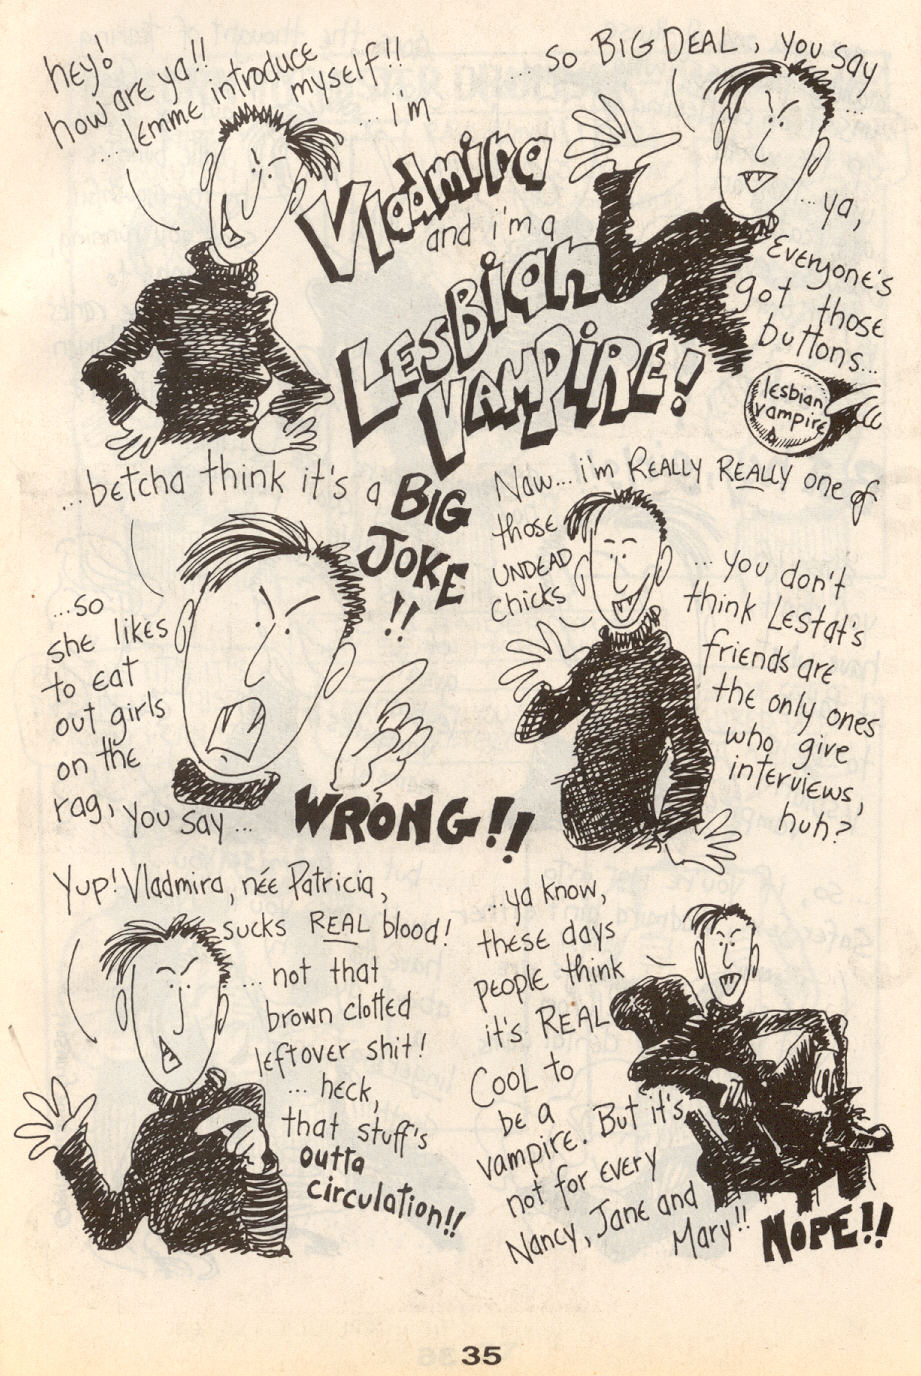 hey!
how are ya!!
...lemme introduce
myself!!
...i'm
Vladmira
and i'm a
LESBian
VAMPiRE!
... so BiG DEAL, you say
...
...ya,
Everyone's
got those
buttons...
lesbian
vampire
...betcha think it's a BiG
JOKE
!!
...so
she likes
to eat
out girls
on the
rag, you say...
WRONG!!
Naw... i'm REALLY REALLY one of
those
UNDEAD
chicks
... you don't
think LEStat's
friends are
the only ones
who give
interviews,
huh?
Yup! Vladmira, née Patricia,
sucks REAL blood!
... not that
brown clotted
leftover shit!
... heck,
that stuff's
outta
circulation!!
...ya know,
these days
people think
it's REAL
COOL to
be a
vampire. But it's
not for every
Nancy, Jane and
Mary!!
NOPE!!
35